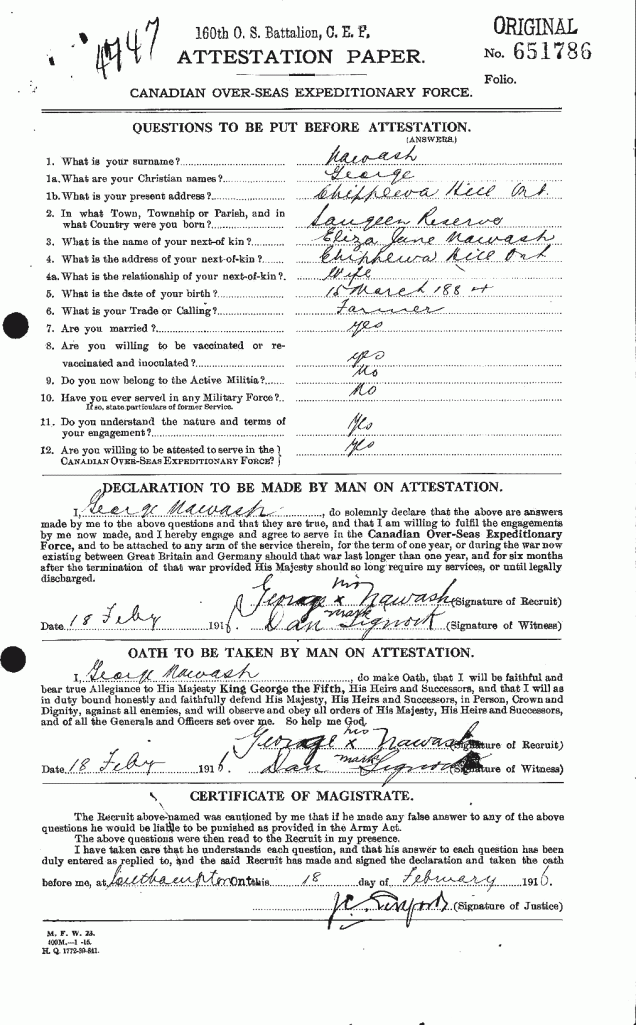 4747
160th O. S. Battalion, C. E. F.
ORIGINAL
ATTESTATION PAPER.
No. 651786
Folio.
CANADIAN OVER-SEAS EXPEDITIONARY FORCE.
QUESTIONS TO BE PUT BEFORE ATTESTATION.
(ANSWERS.)
1. What is your surname?.... Nawash
1a. What are your Christian names?.... George
1b. What is your present address?.... Chippewa Hill Ont.
2. In what Town, Township or Parish, and in
what Country were you born?.... Saugeen Reserve
3. What is the name of your next-of kin?.... Eliza Jane Nawash
4. What is the address of your next-of-kin?.... Chippewa Hill Ont
4a. What is the relationship of your next-of-kin?. Wife
5. What is the date of your birth?.... 15 March 1884
6. What is your Trade or Calling?.... Farmer
7. Are you married?.... yes
8. Are you willing to be vaccinated or re-
vaccinated and inoculated?.... yes
9. Do you now belong to the Active Militia?.... No
10. Have you ever served in any Military Force?.. No
If so, state particulars of former Service.
11. Do you understand the nature and terms of
your engagement?.... Yes
12. Are you willing to be attested to serve in the } Yes
CANADIAN OVER-SEAS EXPEDITIONARY FORCE? }
DECLARATION TO BE MADE BY MAN ON ATTESTATION.
I, George Nawash, do solemnly declare that the above are answers
made by me to the above questions and that they are true, and that I am willing to fulfil the engagements
by me now made, and I hereby engage and agree to serve in the Canadian Over-Seas Expeditionary
Force, and to be attached to any arm of the service therein, for the term of one year, or during the war now
existing between Great Britain and Germany should that war last longer than one year, and for six months
after the termination of that war provided His Majesty should so long require my services, or until legally
discharged.
his
George x Nawash (Signature of Recruit)
mark
Date 18 Feby 1916. Dan (Signature of Witness)
OATH TO BE TAKEN BY MAN ON ATTESTATION.
I, George Nawash, do make Oath, that I will be faithful and
bear true Allegiance to His Majesty King George the Fifth, His Heirs and Successors, and that I will as
in duty bound honestly and faithfully defend His Majesty, His Heirs and Successors, in Person, Crown and
Dignity, against all enemies, and will observe and obey all orders of His Majesty, His Heirs and Successors,
and of all the Generals and Officers set over me. So help me God.
his
George x Nawash (Signature of Recruit)
mark
Date 18 Feby 1916. Dan (Signature of Witness)
CERTIFICATE OF MAGISTRATE.
The Recruit above-named was cautioned by me that if he made any false answer to any of the above
questions he would be liable to be punished as provided in the Army Act.
The above questions were then read to the Recruit in my presence.
I have taken care that he understands each question, and that his answer to each question has been
duly entered as replied to, and the said Recruit has made and signed the declaration and taken the oath
before me, at Southampton Ont this 18 day of February 1916.
(Signature of Justice)
M. F. W. 23.
400M.—1-15.
H. Q. 1772-39-841.